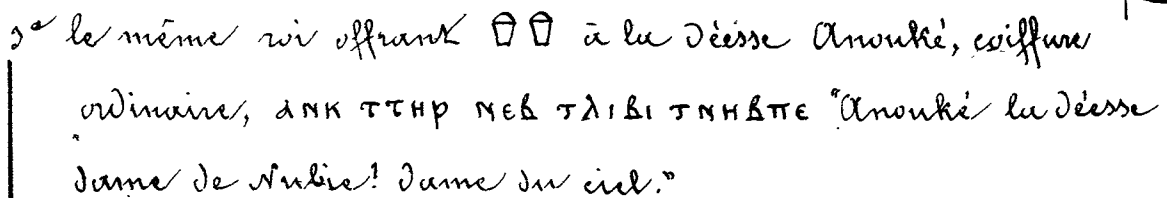 3° le même roi offrant 𓏌𓏌 à la déesse Anouké, coiffure
ordinaire, ⲁⲛⲕ ⲧⲧⲏⲣ ⲛⲉⲃ ⲧⲗⲓⲃⲓ ⲧⲛⲏⲃⲡⲉ "Anouké la déesse
dame de Nubie! dame du ciel."